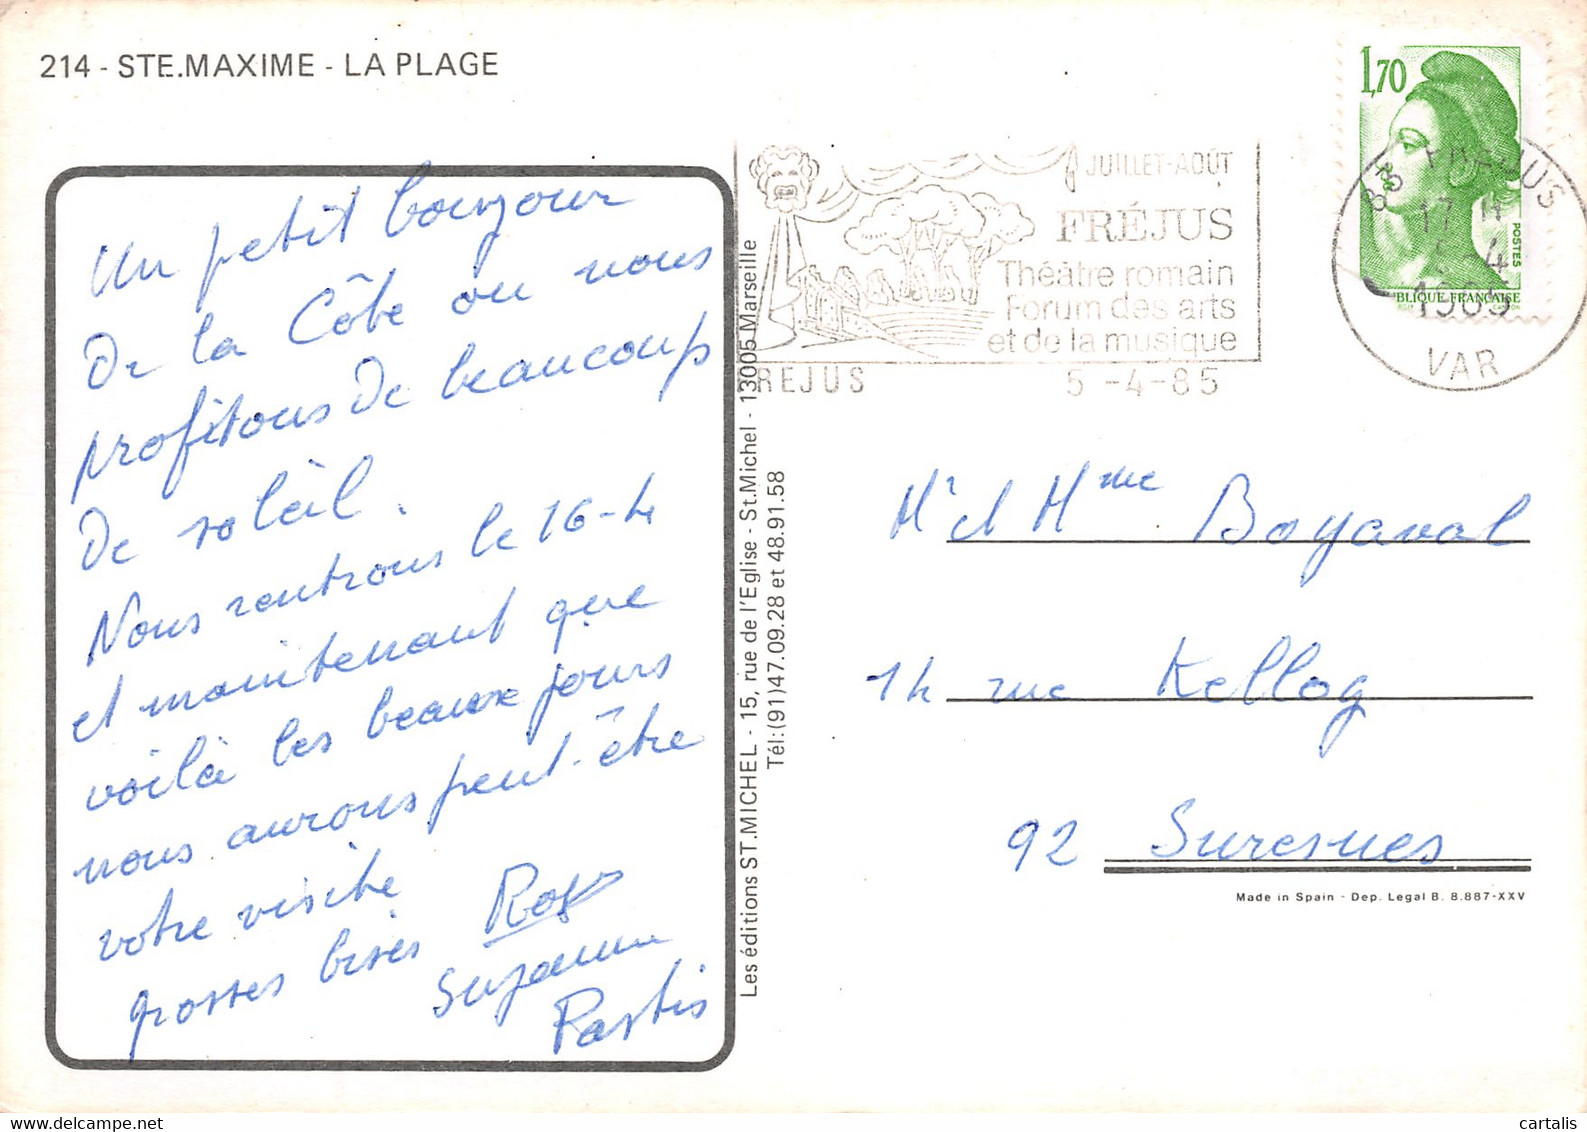 214 - STE.MAXIME - LA PLAGE
Un petit bonjour
De la Côte ou nous
profitons De beaucoup
De soleil.
Nous rentrons le 16-4
et maintenant que
voilà les beaux jours
nous aurons peut-être
votre visite
grosses bises Rog
Suzanne
Pastis
Les éditions ST.MICHEL - 15, rue de l'Eglise - St.Michel - 13005 Marseille
Tél:(91)47.09.28 et 48.91.58
JUILLET-AOÛT
FRÉJUS
Théâtre romain
Forum des arts
et de la musique
REJUS 5 -4-85
1,70
POSTES
BLIQUE FRANÇAISE
83 FREJUS
17 H
5 -4
1985
VAR
Mr et Mme Boyaval
14 rue Kellog
92 Suresnes
Made in Spain - Dep. Legal B. 8.887-XXV
www.delcampe.net
cartalis